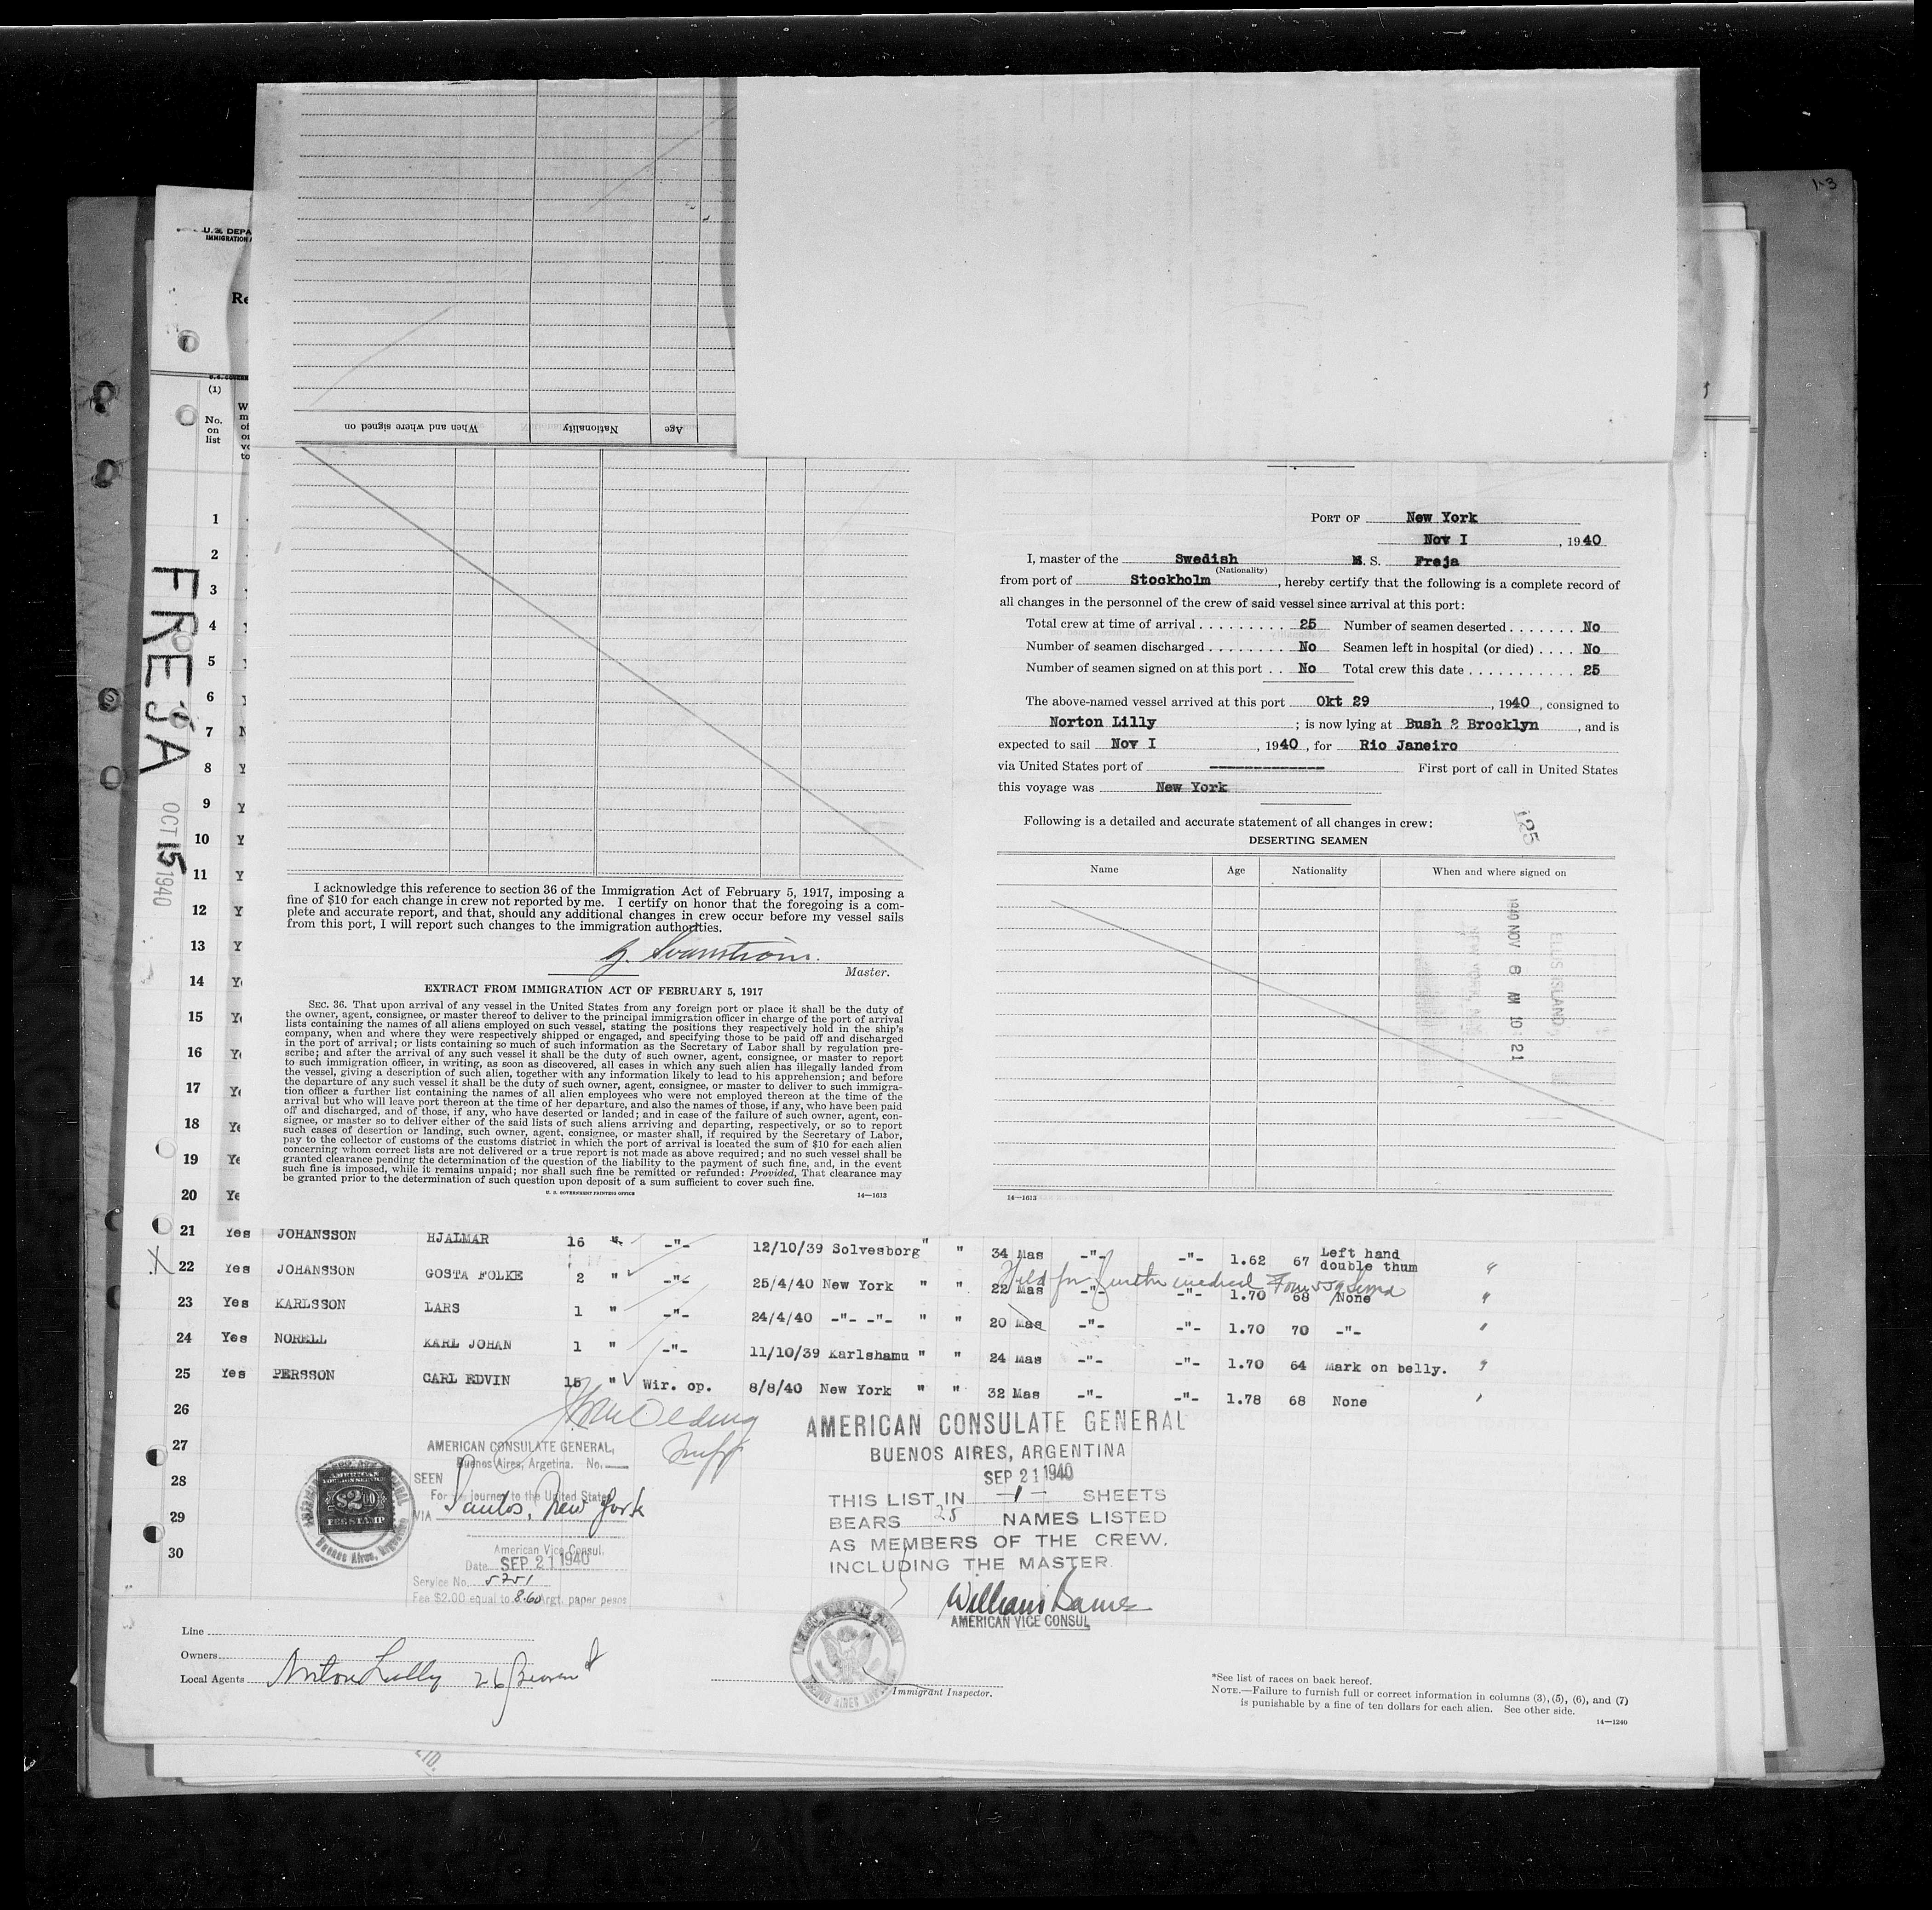 1-3
U. S. DEPA
IMMIGRATION A
Re
(1)
No.
on
list
When and where signed on
Nationality
Age
FREJA
OCT 15 1940
1
2
3
4
5
6
7
8 Y
9 Y
10 Y
11 Y
12 Y
13 Y
14 Ye
15 Ye
16 Ye
17 Ye
18 Ye
19 Ye
20 Ye
I acknowledge this reference to section 36 of the Immigration Act of February 5, 1917, imposing a
fine of $10 for each change in crew not reported by me. I certify on honor that the foregoing is a com-
plete and accurate report, and that, should any additional changes in crew occur before my vessel sails
from this port, I will report such changes to the immigration authorities.
G. Svanström.
Master.
EXTRACT FROM IMMIGRATION ACT OF FEBRUARY 5, 1917
SEC. 36. That upon arrival of any vessel in the United States from any foreign port or place it shall be the duty of
the owner, agent, consignee, or master thereof to deliver to the principal immigration officer in charge of the port of arrival
lists containing the names of all aliens employed on such vessel, stating the positions they respectively hold in the ship's
company, when and where they were respectively shipped or engaged, and specifying those to be paid off and discharged
in the port of arrival; or lists containing so much of such information as the Secretary of Labor shall by regulation pre-
scribe; and after the arrival of any such vessel it shall be the duty of such owner, agent, consignee, or master to report
to such immigration officer, in writing, as soon as discovered, all cases in which any such alien has illegally landed from
the vessel, giving a description of such alien, together with any information likely to lead to his apprehension; and before
the departure of any such vessel it shall be the duty of such owner, agent, consignee, or master to deliver to such immigra-
tion officer a further list containing the names of all alien employees who were not employed thereon at the time of the
arrival but who will leave port thereon at the time of her departure, and also the names of those, if any, who have been paid
off and discharged, and of those, if any, who have deserted or landed; and in case of the failure of such owner, agent, con-
signee, or master so to deliver either of the said lists of such aliens arriving and departing, respectively, or so to report
such cases of desertion or landing, such owner, agent, consignee, or master shall, if required by the Secretary of Labor,
pay to the collector of customs of the customs district in which the port of arrival is located the sum of $10 for each alien
concerning whom correct lists are not delivered or a true report is not made as above required; and no such vessel shall be
granted clearance pending the determination of the question of the liability to the payment of such fine, and, in the event
such fine is imposed, while it remains unpaid; nor shall such fine be remitted or refunded: Provided, That clearance may
be granted prior to the determination of such question upon deposit of a sum sufficient to cover such fine.
U. S. GOVERNMENT PRINTING OFFICE 14—1613
PORT OF New York
Nov I, 1940
I, master of the Swedish M. S. Freja
(Nationality)
from port of Stockholm, hereby certify that the following is a complete record of
all changes in the personnel of the crew of said vessel since arrival at this port:
Total crew at time of arrival 25 Number of seamen deserted No
Number of seamen discharged No Seamen left in hospital (or died) No
Number of seamen signed on at this port No Total crew this date 25
The above-named vessel arrived at this port Okt 29, 1940, consigned to
Norton Lilly; is now lying at Bush 2 Brocklyn, and is
expected to sail Nov I, 1940, for Rio Janeiro
via United States port of ------------- First port of call in United States
this voyage was New York
Following is a detailed and accurate statement of all changes in crew:
125
DESERTING SEAMEN
Name Age Nationality When and where signed on
1940 NOV 8 AM 10 21
ELLIS ISLAND
14—1613
21 Yes JOHANSSON HJALMAR 16 " -"- 12/10/39 Solvesborg " " 34 Mas -"- -"- 1.62 67 Left hand double thum "
22 Yes JOHANSSON GOSTA FOLKE 2 " -"- 25/4/40 New York " " 22 Mas -"- -"- 1.70 68 None "
Held for further medical
23 Yes KARLSSON LARS 1 " -"- 24/4/40 -"- -"- " " 20 Mas -"- -"- 1.70 70 -"- "
24 Yes NORELL KARL JOHAN 1 " -"- 11/10/39 Karlshamu " " 24 Mas -"- -"- 1.70 64 Mark on belly. "
25 Yes PERSSON CARL EDVIN 15 " Wir. op. 8/8/40 New York " " 32 Mas -"- -"- 1.78 68 None "
26
27
28
29
30
AMERICAN CONSULATE GENERAL,
Buenos Aires, Argetina. No.
SEEN
For the journey to the United States
VIA Santos, New York
American Vice Consul.
Date SEP 21 1940
Service No. 5751
Fee $2.00 equal to 8.60 Argt. paper pesos
AMERICAN
FOREIGN SERVICE
$2.00
FEE STAMP
Buenos Aires, Argentina
AMERICAN CONSULATE GENERAL
BUENOS AIRES, ARGENTINA
SEP 21 1940
THIS LIST IN -1- SHEETS
BEARS 25 NAMES LISTED
AS MEMBERS OF THE CREW.
INCLUDING THE MASTER.
William Barnes
AMERICAN VICE CONSUL
Line
Owners
Local Agents Norton Lilly 26 Beaver St
Immigrant Inspector.
*See list of races on back hereof.
NOTE.—Failure to furnish full or correct information in columns (3), (5), (6), and (7)
is punishable by a fine of ten dollars for each alien. See other side.
14—1240